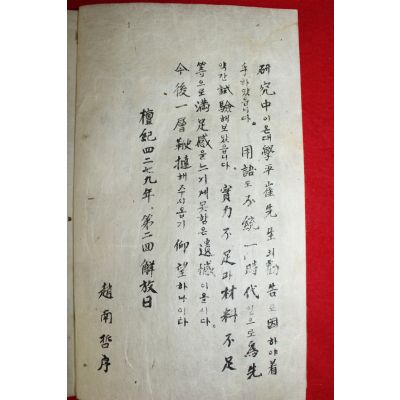 研究中이온대學平崔先生의勸告로因하야着
手하얏습니다。用語도不統一時代임으로爲先
약간試驗해보앗습니다。實力不足과材料不足
等으로滿足感을느기게못함은遺憾이올시다。
今後一層鞭撻해주시옵기仰望하나이다
檀紀四二七九年、第二回解放日
趙南哲序